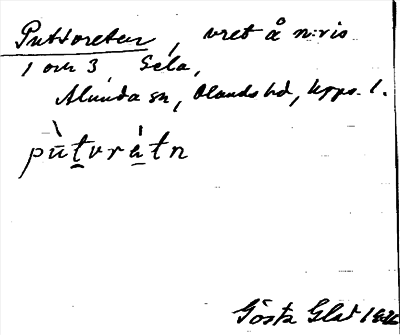 Puttvreten, vret å n:ris
1 och 3, Sela,
Alunda sn, Olands hd, Upps. l.
pùtvrátn
Gösta Glad